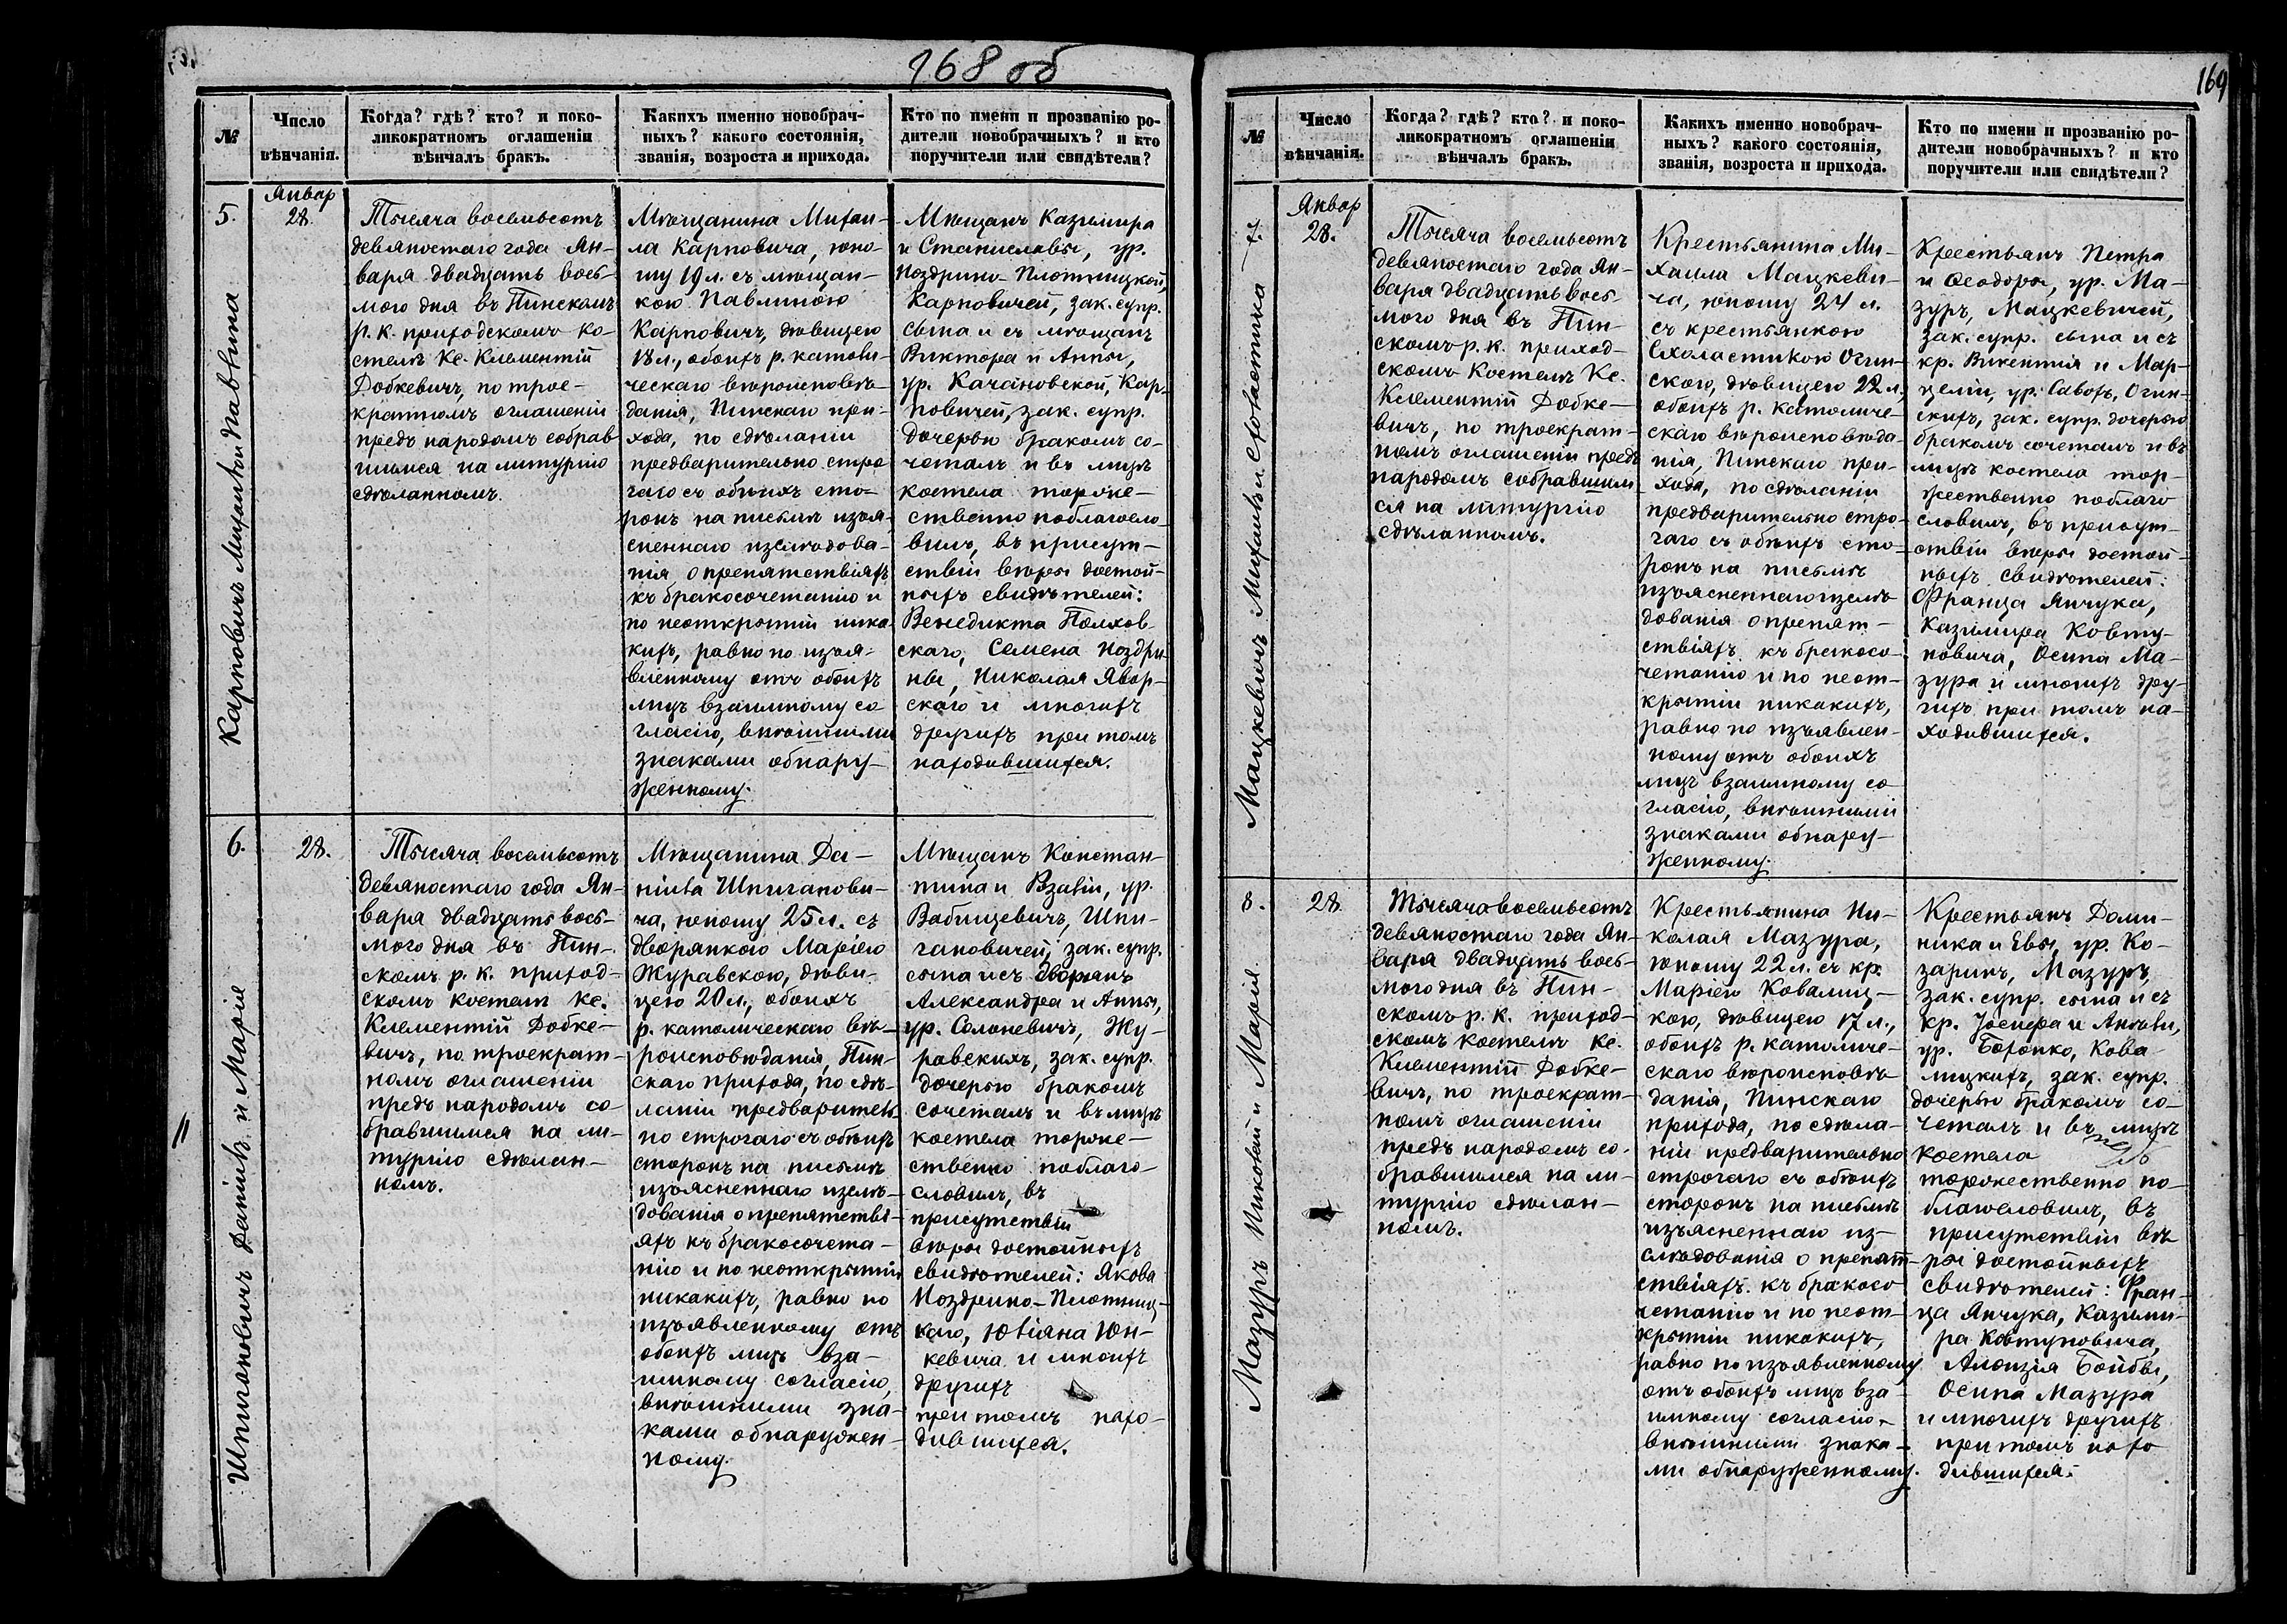 168 об
№
Число
вѣнчанія.
Когда? гдѣ? кто? и поко-
ликократномъ оглашеніи
вѣнчалъ бракъ.
Какихъ именно новобрач-
ныхъ? какого состоянія,
званія, возроста и прихода.
Кто по имени и прозванію ро-
дители новобрачныхъ? и кто
поручители или свидѣтели?
5.
Карповичъ Михаилъ и Павлина
Январ
28.
Тысяча восемьсотъ
девяностаго года Ян-
варя двадцать вось-
мого дня въ Пинскомъ
р. к. приходскомъ ко-
стелѣ Кс. Климентій
Добкевичъ, по трое-
кратномъ оглашеніи
предъ народомъ собрав
шимся на литургію
сдѣланномъ.
Мѣщанина Михаи-
ла Карповича, юно-
шу 19 л. съ мѣщан-
кою Павлиною
Карповичъ, дѣвицею
18 л., обоихъ р. католи-
ческаго вѣроисповѣ-
данія, Пинскаго при-
хода, по сдѣланіи
предварительно стро
гаго съ обѣихъ сто-
ронъ на письмѣ изъя-
сненнаго изслѣдова-
нія о препятствіяхъ
къ бракосочетанію и
по неоткрытіи ника-
кихъ, равно по изъя-
вленному отъ обоихъ
лицъ взаимному со
гласію, внѣшними
знаками обнару-
женному.
Мѣщанъ Казимира
и Станиславы, ур.
Ноздрино-Плотницкой,
Карповичей, зак. супр.
сына и съ мѣщанъ
Виктора и Анны,
ур. Качановской, Кар-
повичей, зак. супр.
дочерью бракомъ со-
четалъ и въ лицѣ
костела торже-
ственно поблагосло-
вилъ, въ присут-
ствіи вѣры достой-
ныхъ свидѣтелей:
Венедикта Полхов-
скаго, Семена Ноздри-
ны, Николая Явор-
скаго и многихъ
другихъ при томъ
находившихся.
6.
Шпигановичъ Даніилъ и Марія
28.
Тысяча восемьсотъ
девяностаго года Ян-
варя двадцать вось-
мого дня въ Пин-
скомъ р. к. приход-
скомъ костелѣ Кс.
Климентій Добке-
вичъ, по троекрат-
номъ оглашеніи
предъ народомъ со-
бравшимся на ли-
тургію сдѣлан-
номъ.
Мѣщанина Да-
ніила Шпиганови-
ча, юношу 25 л. съ
дворянкою Маріею
Журавскою, дѣви-
цею 20 л., обоихъ
р. католическаго вѣ-
роисповѣданія, Пин-
скаго прихода, по сдѣ-
ланіи предваритель-
но строгаго съ обѣихъ
сторонъ на письмѣ
изъясненнаго изслѣ-
дованія о препятстві-
яхъ къ бракосочета-
нію и по неоткрытіи
никакихъ, равно по
изъявленному отъ
обоихъ лицъ вза-
имному согласію,
внѣшними зна-
ками обнаружен-
ному.
Мѣщанъ Констан-
тина и                ур.
Бабицевичъ, Шпи-
гановичей, зак. супр.
сына и съ дворянъ
Александра и Анны,
ур. Солоневичъ, Жу-
равскихъ, зак. супр.
дочерью бракомъ
сочеталъ и въ лицѣ
костела торже-
ственно поблаго-
словилъ, въ
присутствіи
вѣры достойныхъ
свидѣтелей: Якова
Ноздрино-Плотниц-
каго, Юліяна Юн-
кевича и многихъ
другихъ
при томъ нахо-
дившихся.
169
№
Число
вѣнчанія.
Когда? гдѣ? кто? и поко-
ликократномъ оглашеніи
вѣнчалъ бракъ.
Какихъ именно новобрач-
ныхъ? какого состоянія,
званія, возроста и прихода.
Кто по имени и прозванію ро-
дители новобрачныхъ? и кто
поручители или свидѣтели?
7.
Мацкевичъ Михаилъ и Схоластика
Январ
28.
Тысяча восемьсотъ
девяностаго года Ян-
варя двадцать вось-
мого дня въ Пин-
скомъ р. к. приход-
скомъ костелѣ Кс.
Климентій Добке-
вичъ, по троекрат-
номъ оглашеніи предъ
народомъ собравшим
ся на литургію
сдѣланномъ.
Крестьянина Ми-
хаила Мацкеви-
ча, юношу 24 л.
съ крестьянкою
Схоластикою Огин-
скою, дѣвицею 22 л.
обоихъ р. католиче-
скаго вѣроисповѣда-
нія, Пинскаго при-
хода, по сдѣланіи
предварительно стро-
гаго съ обѣихъ сто-
ронъ на письмѣ
изъясненнаго изслѣ
дованія о препят-
ствіяхъ къ бракосо-
четанію и по неот-
крытіи никакихъ,
равно по изъявлен-
ному отъ обоихъ
лицъ взаимному со
гласію, внѣшними
знаками обнару-
женному.
Крестьянъ Петра
и Ѳеодоры, ур. Ма-
зуръ, Мацкевичей,
зак. супр. сына и съ
кр. Викентія и Мар-
целіи, ур. Савохъ, Огин-
скихъ, зак. супр. дочерью
бракомъ сочеталъ и въ
лицѣ костела тор-
жественно поблаго
словилъ, въ присут-
ствіи вѣры достой-
ныхъ свидѣтелей:
Франца Янчука,
Казимира Ковту-
новича, Осипа Ма-
зура и многихъ дру-
гихъ при томъ на-
ходившихся.
8.
Мазуръ Николай и Марія.
28.
Тысяча восемьсотъ
девяностаго года Ян-
варя двадцать вось-
мого дня въ Пин-
скомъ р. к. приход-
скомъ костелѣ Кс.
Климентій Добке-
вичъ, по троекрат-
номъ оглашеніи
предъ народомъ со-
бравшимся на ли-
тургію сдѣлан-
номъ.
Крестьянина Ни-
колая Мазура,
юношу 22 л. съ кр.
Маріею Ковалиц-
кою, дѣвицею 17 л.,
обоихъ р. католиче-
скаго вѣроисповѣ-
данія, Пинскаго
прихода, по сдѣла-
ніи предварительно
строгаго съ обѣихъ
сторонъ на письмѣ
изъясненнаго из-
слѣдованія о препят-
ствіяхъ къ бракосо
четанію и по неот-
крытіи никакихъ,
равно по изъявленному
отъ обоихъ лицъ вза-
имному согласію,
внѣшними знака-
ми обнаруженному.
Крестьянъ Доми-
ника и Евы, ур. Ко-
заринъ, Мазуръ,
зак. супр. сына и съ
кр. Іосифа и Анѣли,
ур. Бохонко, Кова-
лицкихъ, зак. супр.
дочерью бракомъ со-
четалъ и въ лицѣ
костела
торжественно по-
благословилъ, въ
присутствіи вѣ-
ры достойныхъ
свидѣтелей: Фран-
ца Янчука, Казими-
ра Ковтуновича,
Алоизія Бойбы,
Осипа Мазура
и многихъ другихъ
при томъ нахо
дившихся.